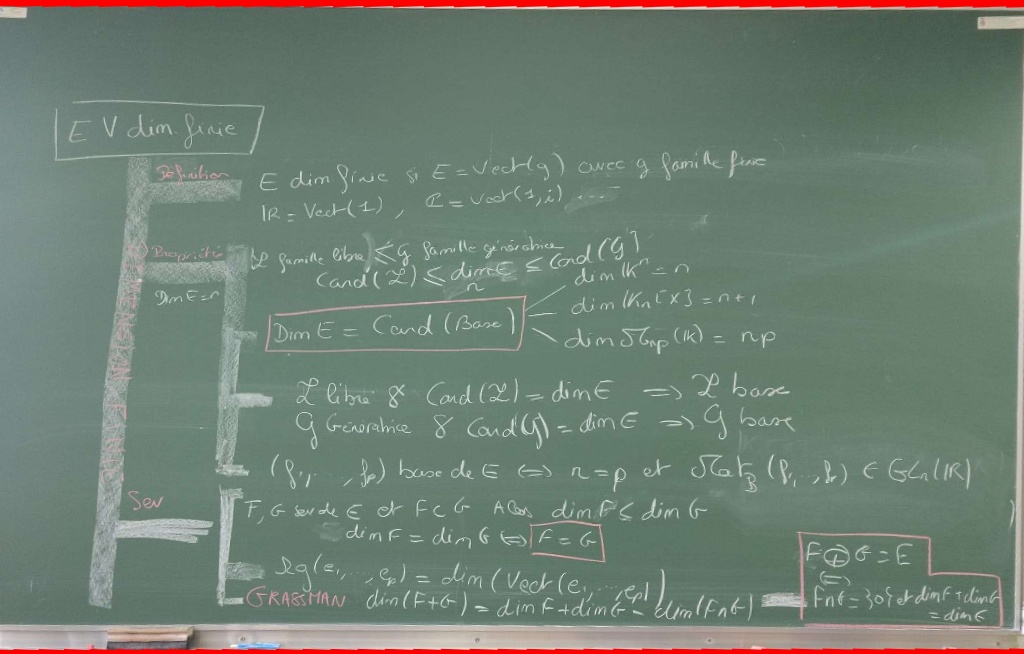 E V dim. finie
Définition
E dim finie si E = Vect(g) avec g famille finie
IR = Vect(1), ℂ = Vect(1, i) ...
Propriétés
Dim E = n
ℒ famille libre ≤ G famille génératrice
Card(ℒ) ≤ dim E ≤ Card(G)
n
dim IKⁿ = n
Dim E = Card (Base)
dim IKn[X] = n+1
dim ℳnp(IK) = np
ℒ libre & Card(ℒ) = dim E ⟹ ℒ base
G Génératrice & Card(G) = dim E ⟹ G base
(f₁, ..., fp) base de E ⟺ n = p et MatB(f₁, ..., fp) ∈ GLn(IR)
Sev
F, G sev de E et F ⊂ G Alors dim F ≤ dim G
dim F = dim G ⟺ F = G
Rg(e₁, ..., ep) = dim(Vect(e₁, ..., ep))
GRASSMAN dim(F+G) = dim F + dim G - dim(F∩G)
F ⊕ G = E
⟺
F∩G = {0} et dim F + dim G
= dim E